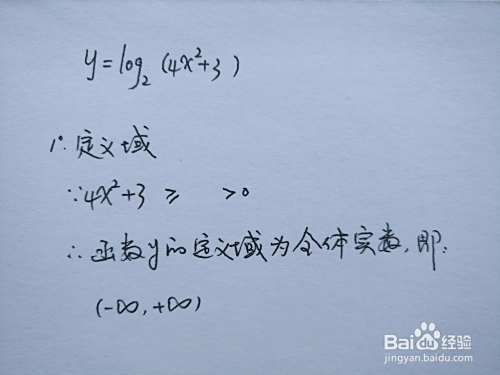 y=log₂(4x²+3)
1°. 定义域
∵4x²+3 ≥ >0
∴函数y的定义域为全体实数,即:
(-∞,+∞)
Baidu经验
jingyan.baidu.com